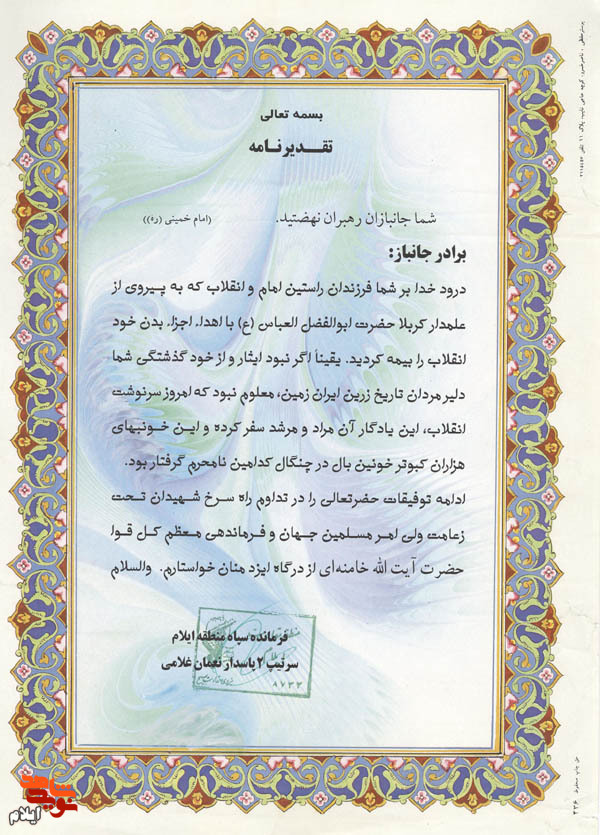 بسمه تعالی
تقدیرنامه
شما جانبازان رهبران نهضتید. (امام خمینی (ره))
برادر جانباز:
درود خدا بر شما فرزندان راستین امام و انقلاب که به پیروی از
علمدار کربلا حضرت ابوالفضل العباس (ع) با اهداء اجزاء بدن خود
انقلاب را بیمه کردید. یقیناً اگر نبود ایثار و از خود گذشتگی شما
دلیر مردان تاریخ زرین ایران زمین، معلوم نبود که امروز سرنوشت
انقلاب، این یادگار آن مراد و مرشد سفر کرده و این خونبهای
هزاران کبوتر خونین بال در چنگال کدامین نامحرم گرفتار بود.
ادامه توفیقات حضرتعالی را در تداوم راه سرخ شهیدان تحت
زعامت ولی امر مسلمین جهان و فرماندهی معظم کل قوا
حضرت آیت الله خامنه‌ای از درگاه ایزد منان خواستارم. والسلام
فرمانده سپاه منطقه ایلام
سرتیپ ۲ پاسدار نعمان غلامی
۸۷۲۲
حق چاپ محفوظ
۲۲۶
نوید شاهد
ایلام